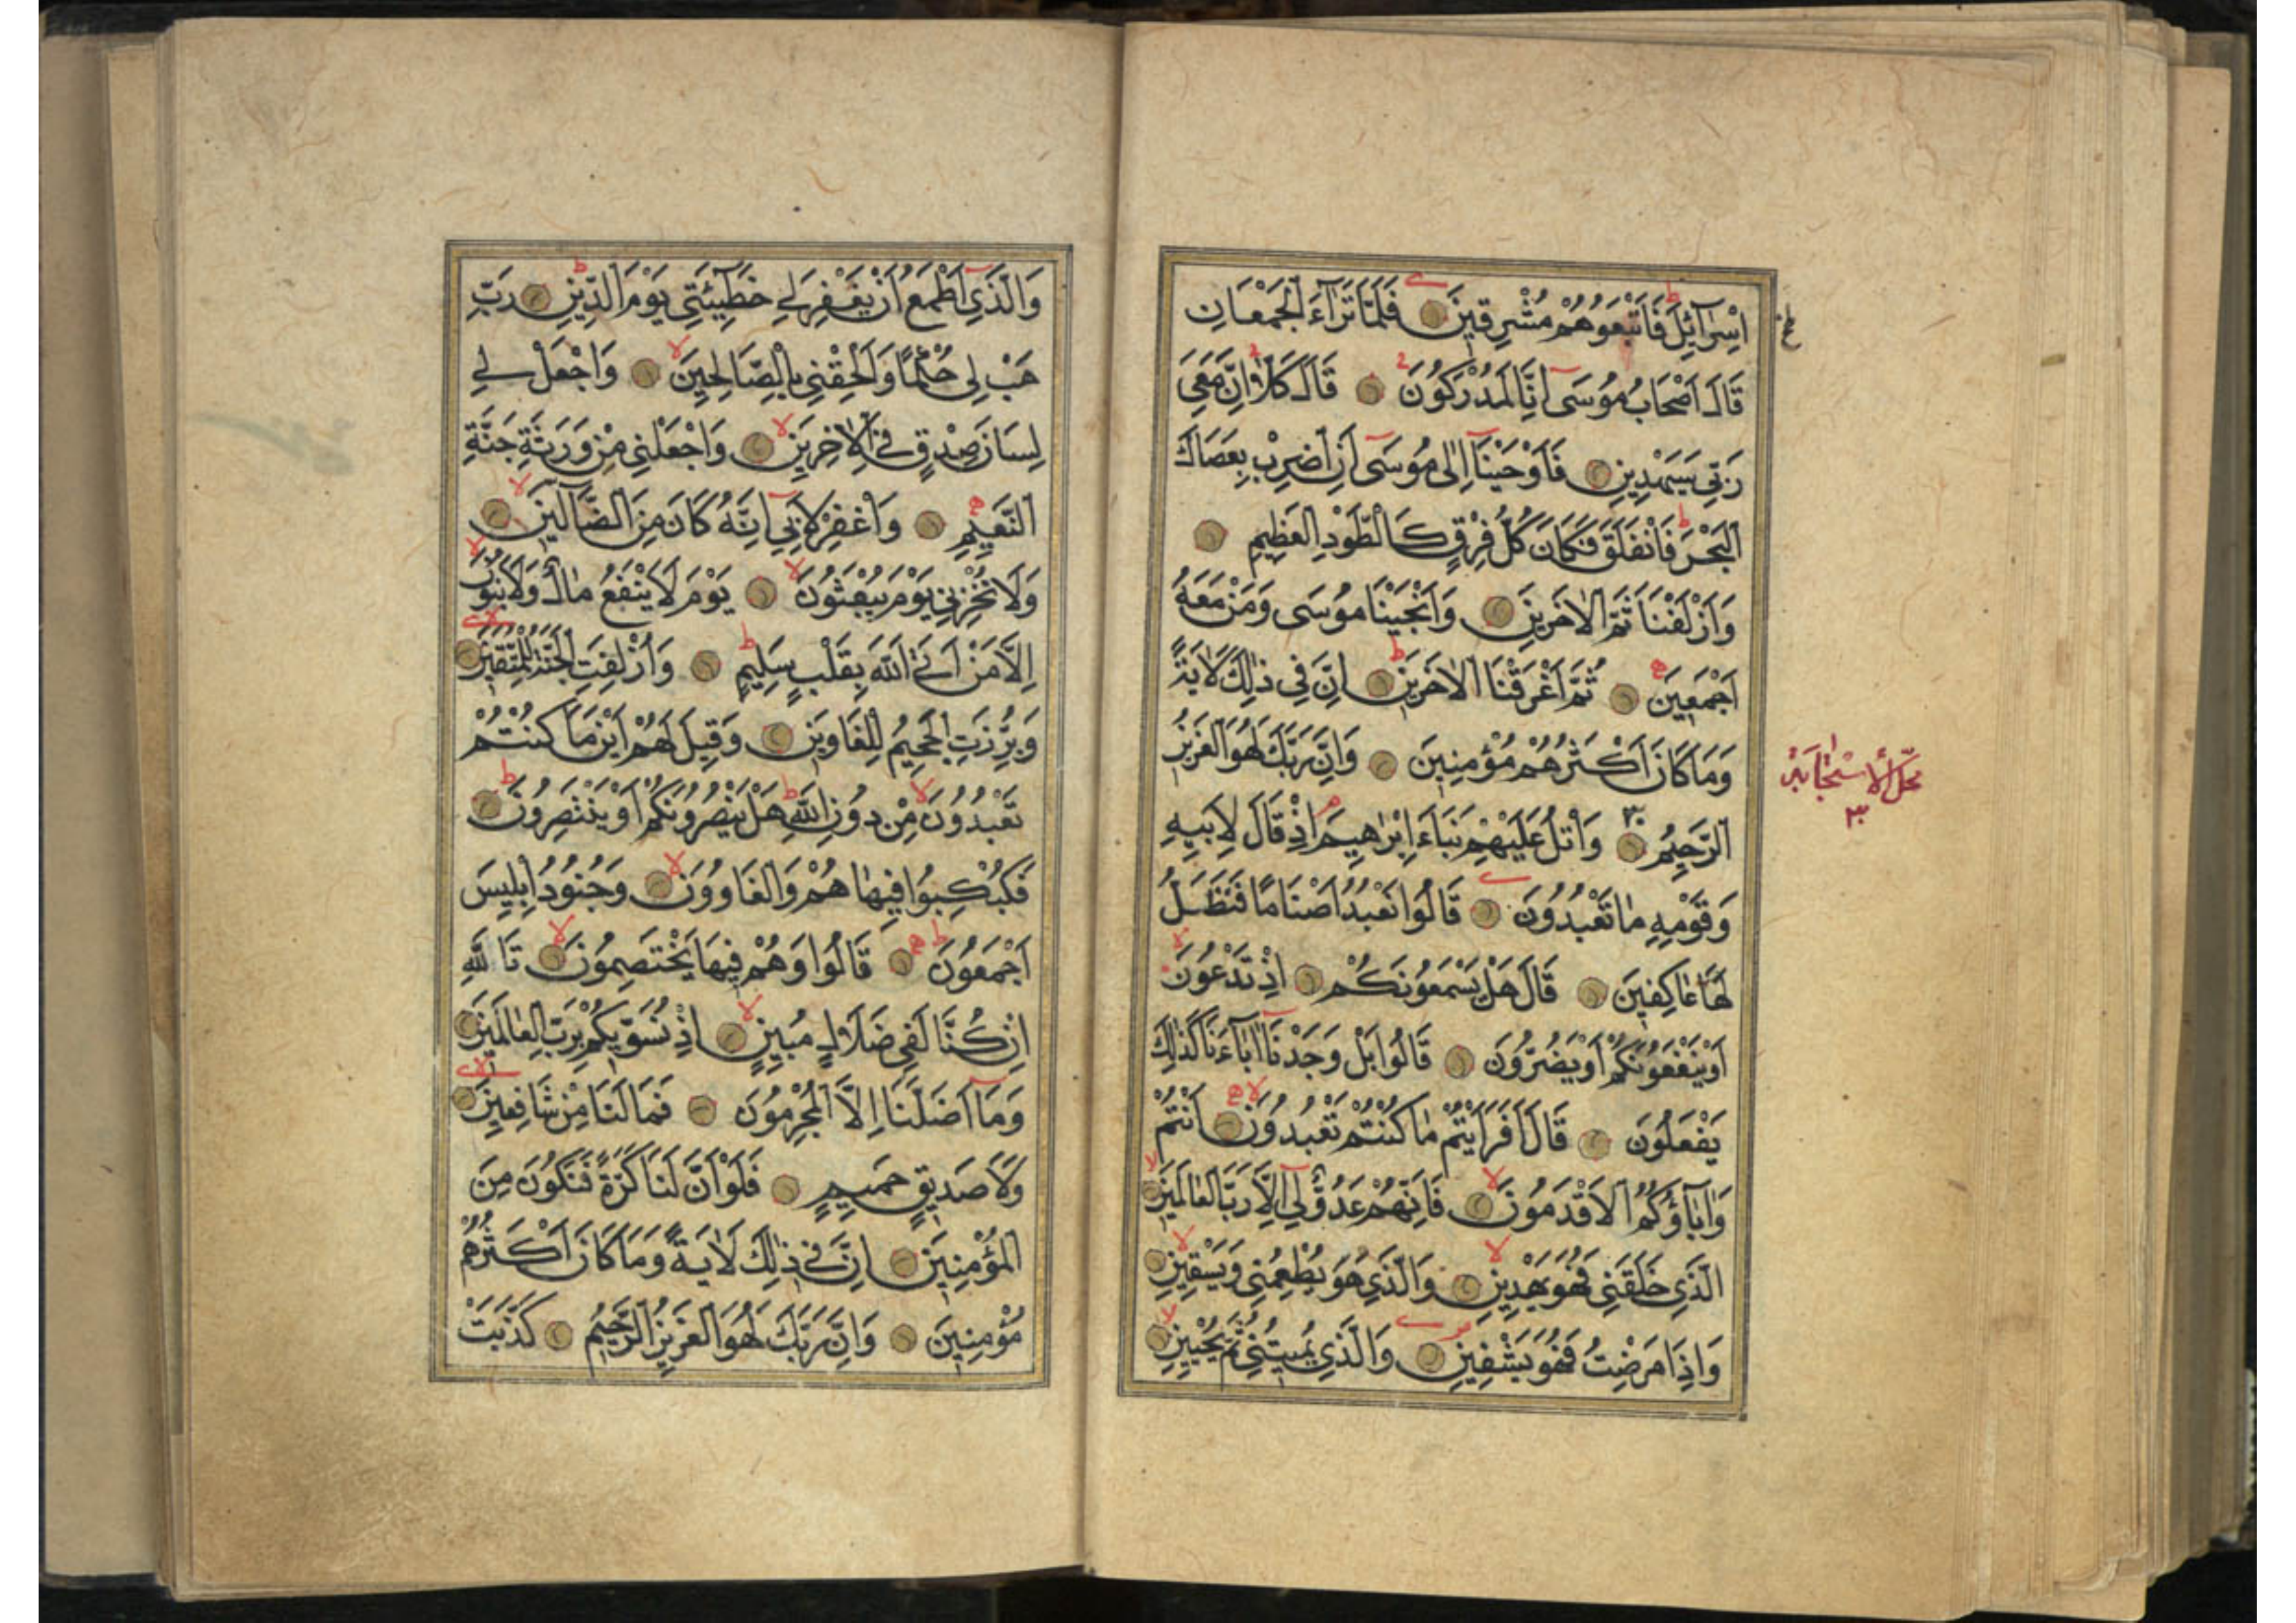 اِسْرَآئِيلَ فَاَتْبَعُوهُمْ مُشْرِقِينَ فَلَمَّا تَرَآءَ الْجَمْعَانِ
قَالَ اَصْحَابُ مُوسَى اِنَّا لَمُدْرَكُونَ قَالَ كَلَّا اِنَّ مَعِيَ
رَبِّي سَيَهْدِينِ فَاَوْحَيْنَا اِلٰى مُوسَى اَنِ اضْرِبْ بِعَصَاكَ
الْبَحْرَ فَانْفَلَقَ فَكَانَ كُلُّ فِرْقٍ كَالطَّوْدِ الْعَظِيمِ
وَاَزْلَفْنَا ثَمَّ الْاٰخَرِينَ وَاَنْجَيْنَا مُوسَى وَمَنْ مَعَهُ
اَجْمَعِينَ ثُمَّ اَغْرَقْنَا الْاٰخَرِينَ اِنَّ فِي ذٰلِكَ لَاٰيَةً
وَمَا كَانَ اَكْثَرُهُمْ مُؤْمِنِينَ وَاِنَّ رَبَّكَ لَهُوَ الْعَزِيزُ
الرَّحِيمُ وَاتْلُ عَلَيْهِمْ نَبَاَ اِبْرٰهِيمَ اِذْ قَالَ لِاَبِيهِ
وَقَوْمِهِ مَا تَعْبُدُونَ قَالُوا نَعْبُدُ اَصْنَامًا فَنَظَلُّ
لَهَا عَاكِفِينَ قَالَ هَلْ يَسْمَعُونَكُمْ اِذْ تَدْعُونَ
اَوْ يَنْفَعُونَكُمْ اَوْ يَضُرُّونَ قَالُوا بَلْ وَجَدْنَا اٰبَآءَنَا كَذٰلِكَ
يَفْعَلُونَ قَالَ اَفَرَاَيْتُمْ مَا كُنْتُمْ تَعْبُدُونَ اَنْتُمْ
وَاٰبَآؤُكُمُ الْاَقْدَمُونَ فَاِنَّهُمْ عَدُوٌّ لِي اِلَّا رَبَّ الْعَالَمِينَ
الَّذِي خَلَقَنِي فَهُوَ يَهْدِينِ وَالَّذِي هُوَ يُطْعِمُنِي وَيَسْقِينِ
وَاِذَا مَرِضْتُ فَهُوَ يَشْفِينِ وَالَّذِي يُمِيتُنِي ثُمَّ يُحْيِينِ
وَالَّذِي اَطْمَعُ اَنْ يَغْفِرَ لِي خَطِيئَتِي يَوْمَ الدِّينِ رَبِّ
هَبْ لِي حُكْمًا وَاَلْحِقْنِي بِالصَّالِحِينَ وَاجْعَلْ لِي
لِسَانَ صِدْقٍ فِي الْاٰخِرِينَ وَاجْعَلْنِي مِنْ وَرَثَةِ جَنَّةِ
النَّعِيمِ وَاغْفِرْ لِاَبِي اِنَّهُ كَانَ مِنَ الضَّآلِّينَ
وَلَا تُخْزِنِي يَوْمَ يُبْعَثُونَ يَوْمَ لَا يَنْفَعُ مَالٌ وَلَا بَنُونَ
اِلَّا مَنْ اَتَى اللّٰهَ بِقَلْبٍ سَلِيمٍ وَاُزْلِفَتِ الْجَنَّةُ لِلْمُتَّقِينَ
وَبُرِّزَتِ الْجَحِيمُ لِلْغَاوِينَ وَقِيلَ لَهُمْ اَيْنَ مَا كُنْتُمْ
تَعْبُدُونَ مِنْ دُونِ اللّٰهِ هَلْ يَنْصُرُونَكُمْ اَوْ يَنْتَصِرُونَ
فَكُبْكِبُوا فِيهَا هُمْ وَالْغَاوُونَ وَجُنُودُ اِبْلِيسَ
اَجْمَعُونَ قَالُوا وَهُمْ فِيهَا يَخْتَصِمُونَ تَاللّٰهِ
اِنْ كُنَّا لَفِي ضَلَالٍ مُبِينٍ اِذْ نُسَوِّيكُمْ بِرَبِّ الْعَالَمِينَ
وَمَا اَضَلَّنَا اِلَّا الْمُجْرِمُونَ فَمَا لَنَا مِنْ شَافِعِينَ
وَلَا صَدِيقٍ حَمِيمٍ فَلَوْ اَنَّ لَنَا كَرَّةً فَنَكُونَ مِنَ
الْمُؤْمِنِينَ اِنَّ فِي ذٰلِكَ لَاٰيَةً وَمَا كَانَ اَكْثَرُهُمْ
مُؤْمِنِينَ وَاِنَّ رَبَّكَ لَهُوَ الْعَزِيزُ الرَّحِيمُ كَذَّبَتْ